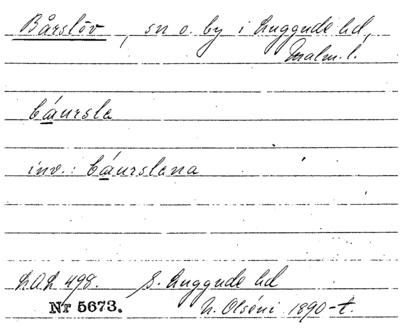 Bårslöv, sn o. by i Luggude hd,
Malm. l.
båursle
inv.: båurslena
L.A.L 498. S. Luggude hd
Nr 5673. N. Olséni 1890-t.